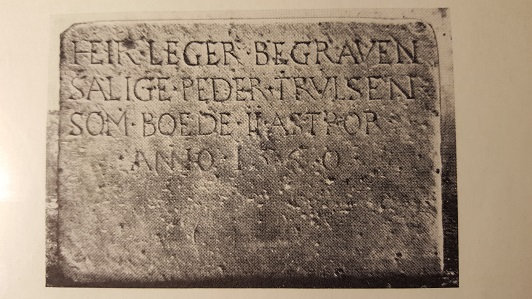 HEIR·LEGER·BEGRAVEN
SALIGE·PEDER·TRVLSEN
SOM·BOEDE·II·ASTROP
·ANNO·